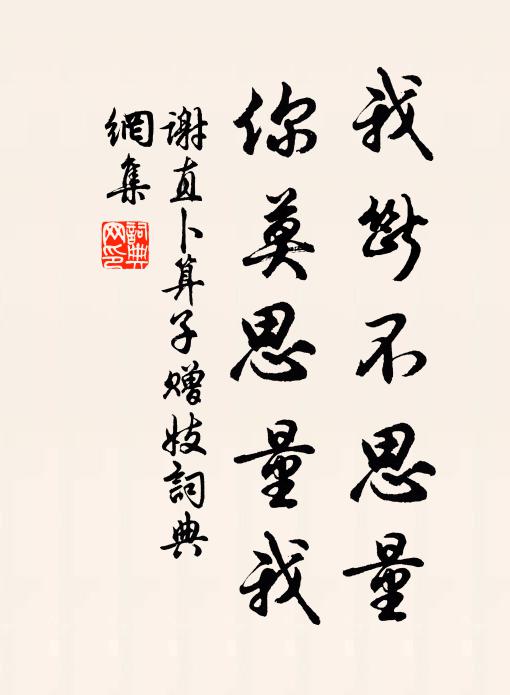 我断不思量
你莫思量我
谢直卜算子赠妓詞典
網集
詞典
网印